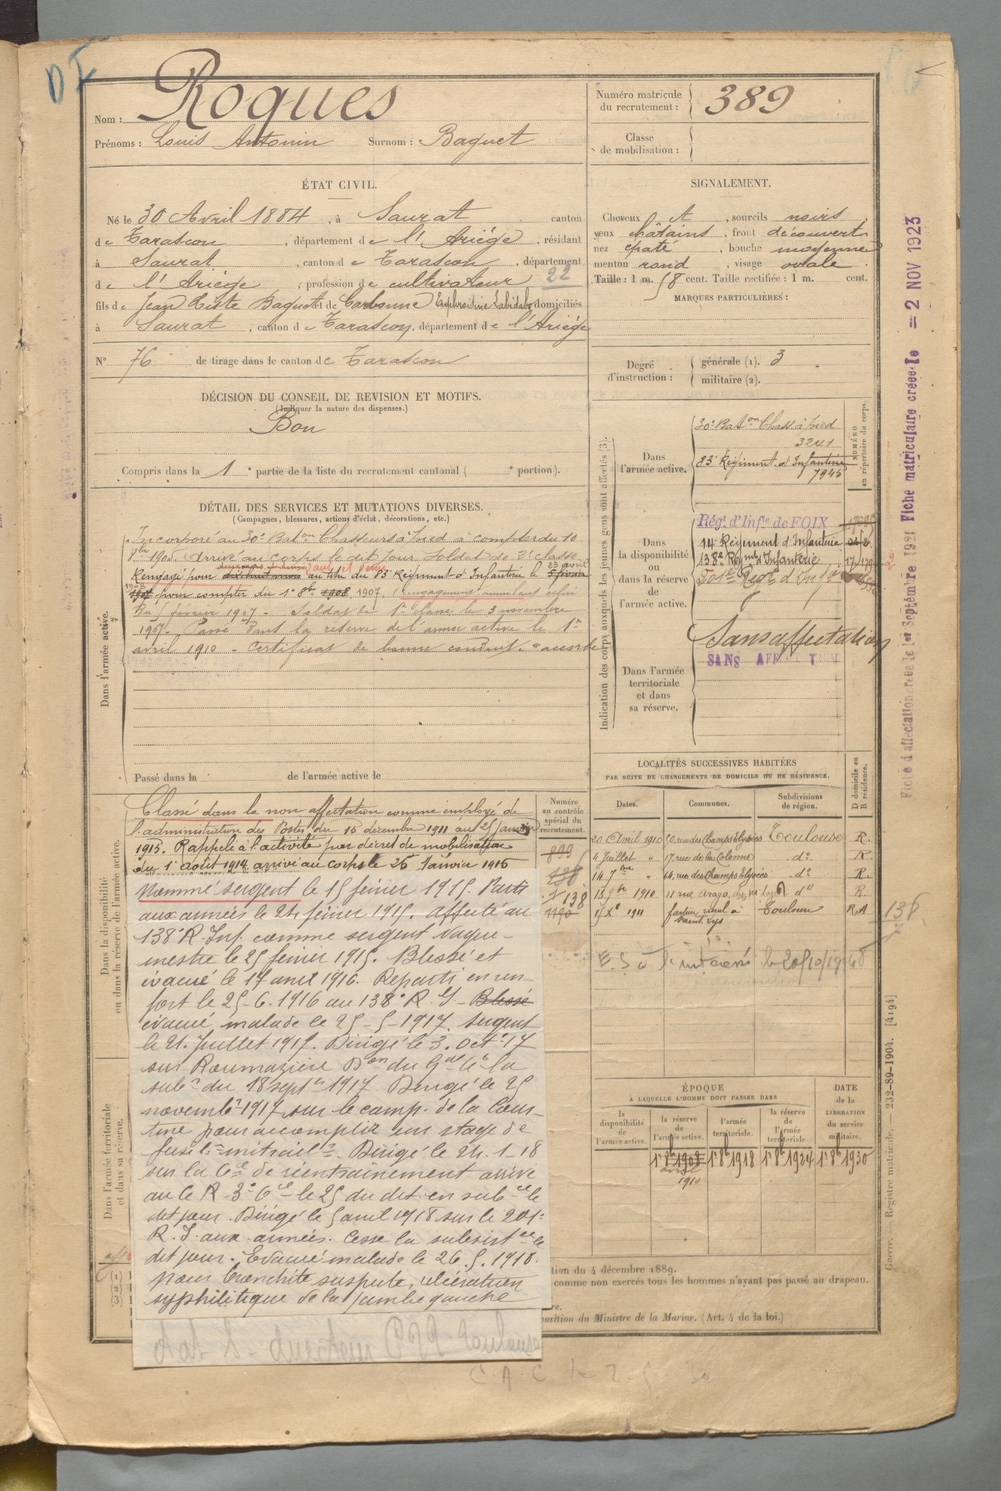 Nom : Roques
Prénoms : Louis Antonin Surnom : Baquet
Numéro matricule du recrutement : 389
Classe de mobilisation :
ÉTAT CIVIL.
Né le 30 Avril 1884, à Saurat canton
de Tarascon, département de l'Ariège, résidant
à Saurat, canton de Tarascon, département
de l'Ariège, profession de cultivateur 22
fils de Jean et de domiciliés
à Saurat, canton de Tarascon, département de l'Ariège
N° 76 de tirage dans le canton de Tarascon
SIGNALEMENT.
Cheveux , sourcils noirs
yeux châtains, front découvert
nez épaté, bouche moyenne
menton rond, visage ovale
Taille : 1 m. 58 cent. Taille rectifiée : 1 m. cent.
MARQUES PARTICULIÈRES :
Degré d'instruction : générale (1). 3
militaire (2).
DÉCISION DU CONSEIL DE REVISION ET MOTIFS.
(Indiquer la nature des dispenses.)
Bon
Compris dans la 1e partie de la liste du recrutement cantonal ( e portion).
DÉTAIL DES SERVICES ET MUTATIONS DIVERSES.
(Campagnes, blessures, actions d'éclat, décorations, etc.)
Dans l'armée active.
Incorporé au 30e Baton Chasseurs à Pied à compter du 10
arrivé au corps le dit jour. Soldat de 2e classe
Rengagé pour au titre du 83e Régiment d'Infanterie le
pour compter du 1er 8bre 1908, 1907.
février 1907 - Soldat de 1e classe le 3 novembre
1907. Passé dans la réserve de l'armée active le 1er
avril 1910 - Certificat de bonne conduite accordé
Passé dans la de l'armée active le
Dans la disponibilité ou dans la réserve de l'armée active.
Classé dans la non affectation comme employé de
l'administration des Postes du 16 décembre 1911 au 25 Janvier
1915. Rappelé à l'activité par décret de mobilisation
du 1er août 1914 arrivé au corps le 26 Janvier 1915
Nommé sergent le 15 février 1915. Parti
aux armées le 24 février 1915. Affecté au
138e R. Inf. comme sergent vague-
mestre le 25 février 1915. Blessé et
évacué le 17 avril 1916. Reparti en ren-
fort le 25-6-1916 au 138e R. I. Blessé
évacué malade le 25-5-1917. Sergent
le 21 Juillet 1917. Dirigé le 3 Octe 17
sur Roumazières
du 18 septe 1917. Dirigé le 25
novembre 1917 sur le camp de la Cour-
tine pour accomplir un stage de
fusil mitrail. Dirigé le 24-1-18
sur la Cie de réentrainement arrivé
le 25 du dit en sub le
dit jour. Dirigé le 5 avril 1918 sur le 201e
R. I. aux armées. Cesse la subsist le
dit jour. Evacué malade le 26.5.1918.
pour bronchite suspecte, ulcération
syphilitique de la jambe gauche
Dans l'armée territoriale et dans sa réserve.
Indication des corps auxquels les jeunes gens sont affectés (3).
NUMÉRO au répertoire du corps.
Dans l'armée active.
30e Baton Chass à Pied
3241
83e Régiment d'Infanterie
7948
Dans la disponibilité ou dans la réserve de l'armée active.
Rég. d'Infie de FOIX
14e Régiment d'Infanterie
138e Rgt d'Infanterie
201e Régt d'Inf
Dans l'armée territoriale et dans sa réserve.
Sans affectation
SANS AFFECTATION
Fiche d'affectation créée le 1er Septembre 1921 Fiche matriculaire créée le = 2 NOV 1923
LOCALITÉS SUCCESSIVES HABITÉES
PAR SUITE DE CHANGEMENTS DE DOMICILE OU DE RÉSIDENCE.
Dates. Communes. Subdivisions de région. D domicile ou R résidence.
20 Avril 1910 60 rue des Champs Elysées Toulouse R.
4 Juillet " 17 rue de la Colonne do R.
14 7bre " 60, rue des Champs Elysées do R.
1910 11 rue Arago, do R.
1911 facteur rural à Saint Lys Toulouse R.A
Numéro au contrôle spécial du recrutement.
899
138
1190
136
ÉPOQUE
À LAQUELLE L'HOMME DOIT PASSER DANS
la disponibilité de l'armée active.
la réserve de l'armée active.
l'armée territoriale.
la réserve de l'armée territoriale.
DATE de la LIBÉRATION du service militaire.
1er 8bre 1908 1er 8bre 1918 1er 8bre 1924 1er 8bre 1930
1910
tion du 4 décembre 1889.
comme non exercés tous les hommes n'ayant pas passé au drapeau.
position du Ministre de la Marine. (Art. 4 de la loi.)
Guerre. — Registre matricule. — 232-89-1904. [4194]